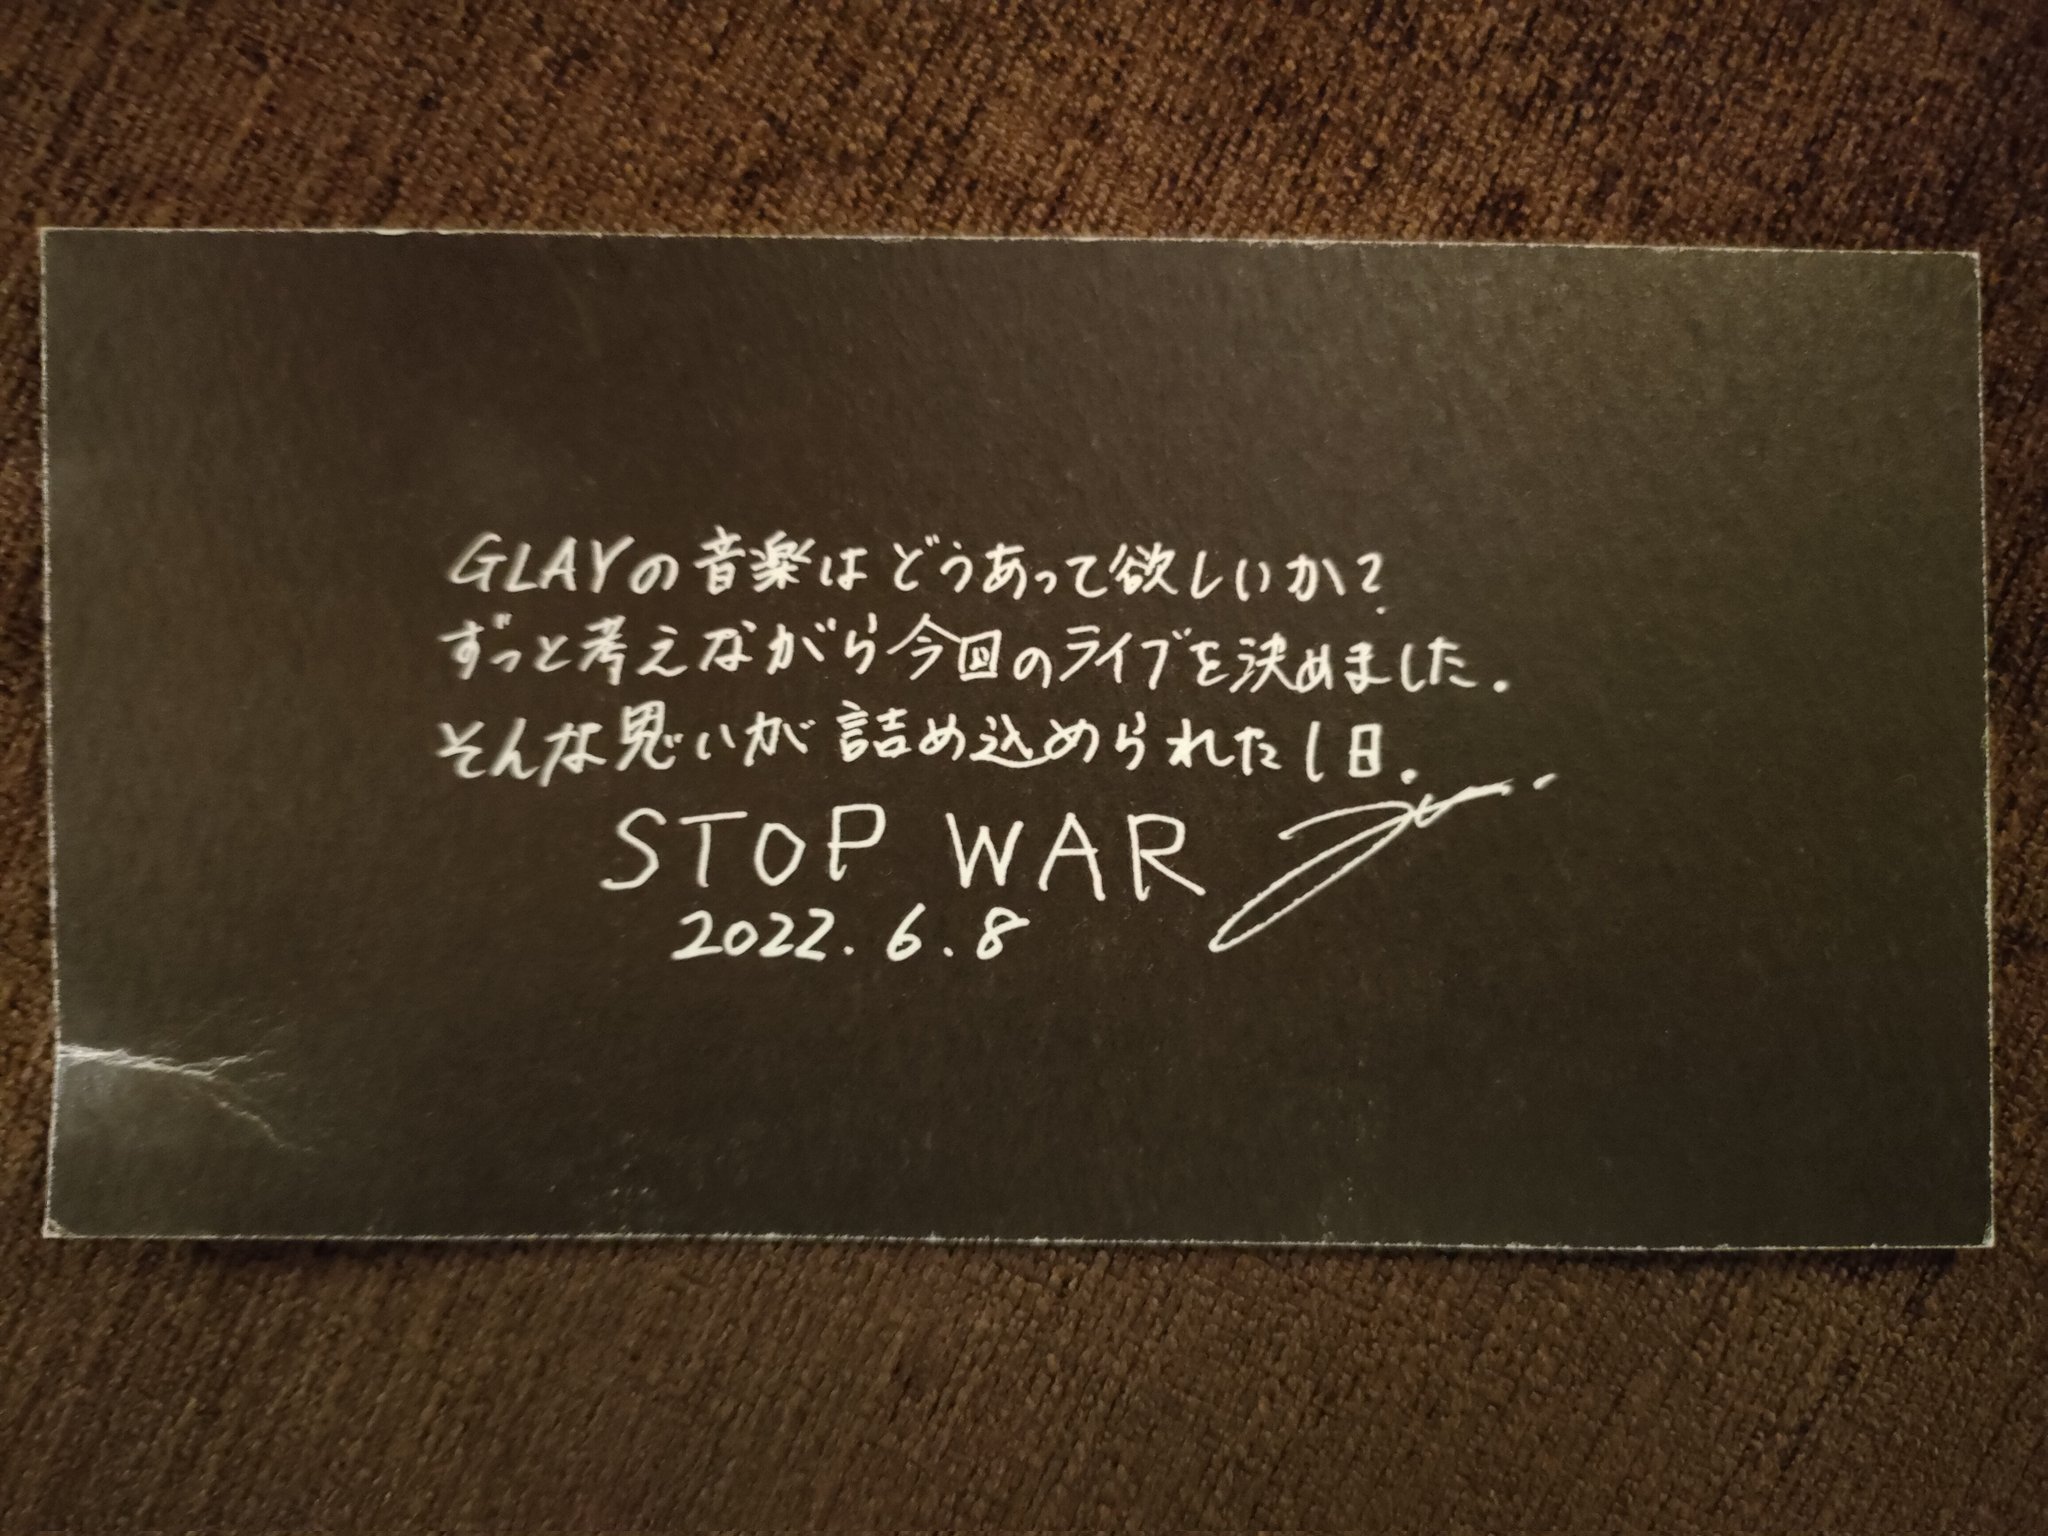 GLAYの音楽はどうあって欲しいか?
ずっと考えながら今回のライブを決めました.
そんな思いが詰め込められた1日.
STOP WAR
2022.6.8